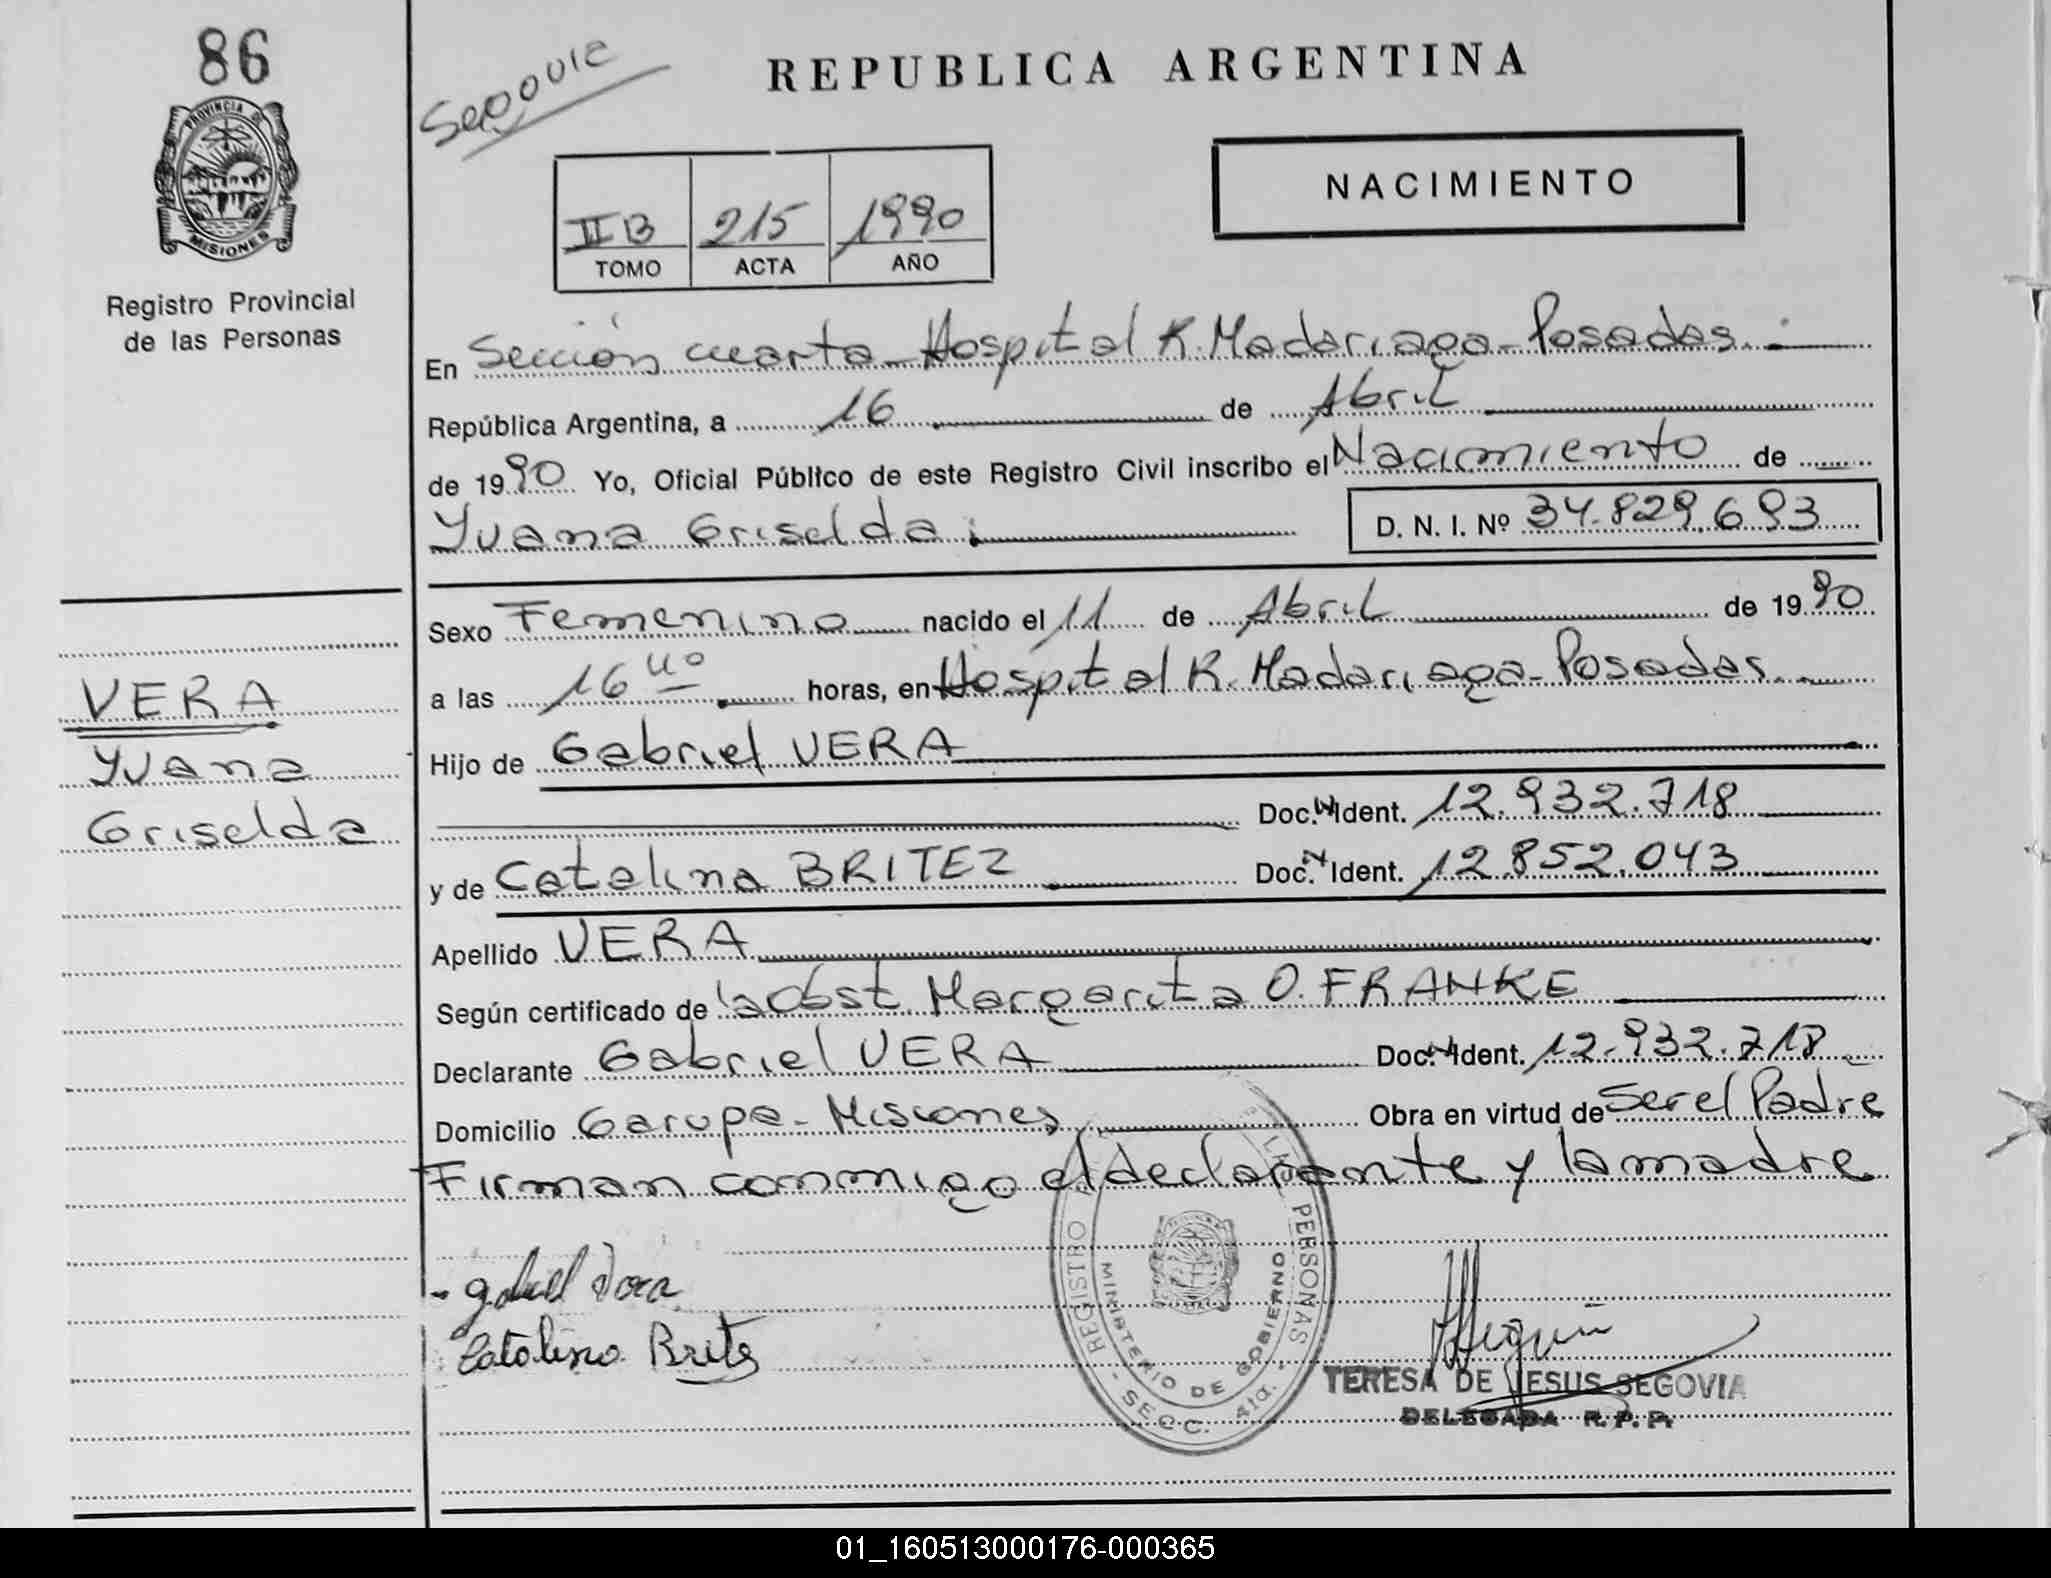 86
Segovia
REPUBLICA ARGENTINA
PROVINCIA DE
MISIONES
NACIMIENTO
II B 215 1990
TOMO ACTA AÑO
Registro Provincial
de las Personas
En Sección cuarta - Hospital R. Madariaga - Posadas.
República Argentina, a 16 de Abril
de 1990 Yo, Oficial Público de este Registro Civil inscribo el Nacimiento de
Yvana Griselda D. N. I. Nº 34.829.693
Sexo Femenino nacido el 11 de Abril de 1990
a las 16 horas, en Hospital R. Madariaga - Posadas.
VERA
Yvana
Griselda
Hijo de Gabriel VERA
Doc. N Ident. 12.932.718
y de Catalina BRITEZ Doc. N Ident. 12.852.043
Apellido VERA
Según certificado de la Obst. Margarita O. FRANKE
Declarante Gabriel VERA Doc. N Ident. 12.932.718
Domicilio Garupa - Misiones Obra en virtud de Ser el Padre
Firman conmigo el declarante y la madre
Gabriel Vera
Catalina Britez
REGISTRO PERSONAS
MINISTERIO DE GOBIERNO
- SECC. 4ta. -
TERESA DE JESUS SEGOVIA
DELEGADA R. P. P.
01_160513000176-000365